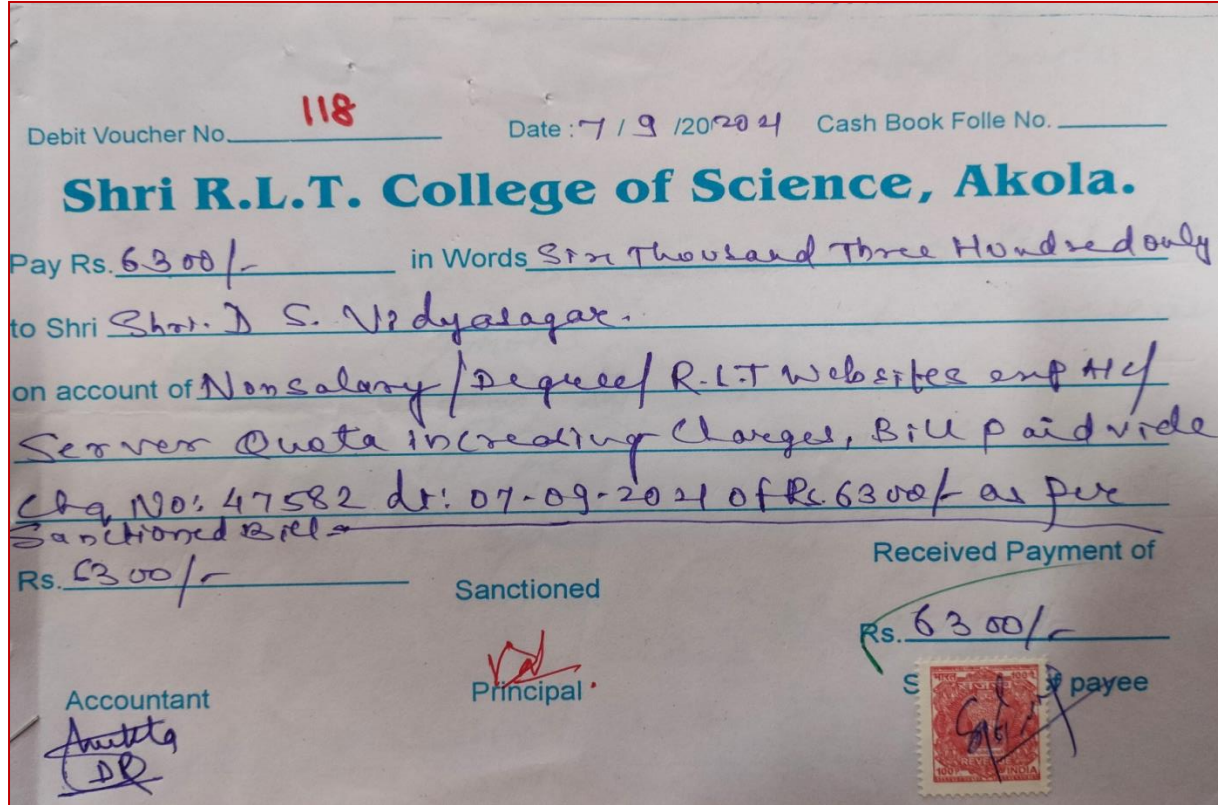 Debit Voucher No. 118 Date : 7 / 9 /202021 Cash Book Folle No.
Shri R.L.T. College of Science, Akola.
Pay Rs. 6300/- in Words Six Thousand Three Hundred only
to Shri Shri. D S. Vidyasagar.
on account of Nonsalary/Degree/ R.L.T Websites exp A/c/
Server Quota increasing Charges, Bill paid vide
Chq No: 47582 dt: 07-09-2021 of Rs. 6300/- as per
Sanctioned Bill
Rs. 6300/- Sanctioned Received Payment of
Rs. 6300/-
Accountant Principal. S payee
DR
भारत 100
REVENUE
100 INDIA